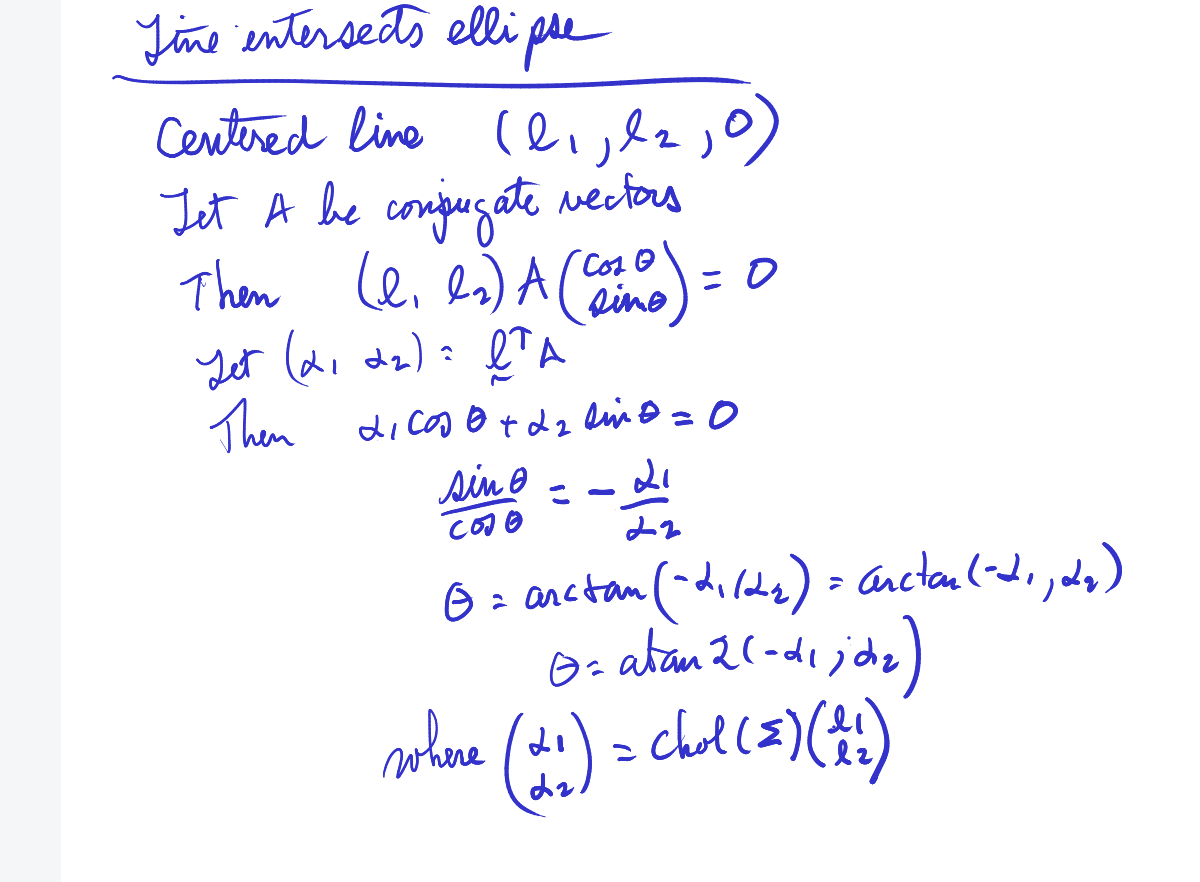 Line intersects ellipse
Centered line (l₁, l₂, 0)
Let A be conjugate vectors
Then (l₁ l₂) A (cos θ
sin θ) = 0
Let (α₁ α₂) = l^T A
Then α₁ cos θ + α₂ sin θ = 0
sin θ / cos θ = - α₁ / α₂
θ = arctan(-α₁/α₂) = arctan(-α₁, α₂)
θ = atan2(-α₁, α₂)
where (α₁
α₂) = chol(Σ) (l₁
l₂)